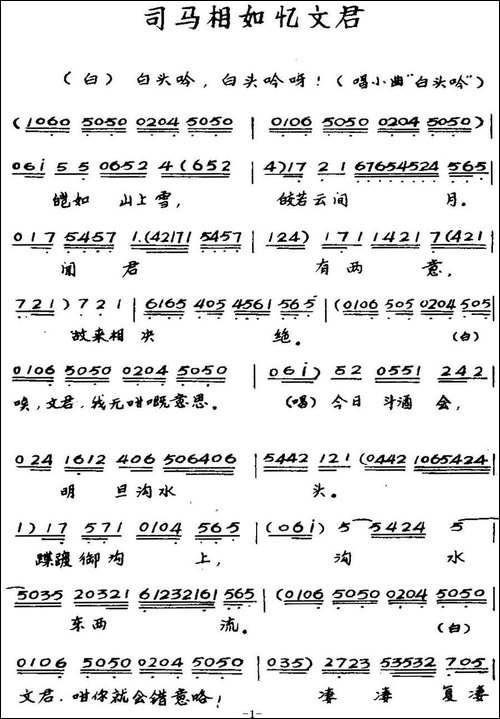 司马相如忆文君
（白）白头吟，白头吟呀！（唱小曲“白头吟”）
(1060 5050 0204 5050 | 0106 5050 0204 5050)|
06i 5 5 0652 4 (652 | 4)17 2 1 67654524 565|
皑如 山上雪， 皎若云间 月。
017 5457 1.(42171 5457 | 124) 171 1421 7(421|
闻君 有两意，
721) 721 | 6165 405 4561 565 | (0106 505 0204 505|
故来相决 绝。 （白）
0106 5050 0204 5050 | 06i) 52 0551 242|
唉，文君，我无咁嘅意思。 （唱）今日斗酒会，
024 1612 406 506406 | 5442 121 (0442 1065424|
明旦沟水 头。
1) 17 571 0104 565 | (06i) 5 5424 5
蹀躞御沟 上， 沟 水
5035 20321 61232161 565 | (0106 5050 0204 5050|
东西 流。 （白）
0106 5050 0204 5050 | 035) 2723 53532 705|
文君，咁你就会错意咯！ 凄 凄 复凄
-1-